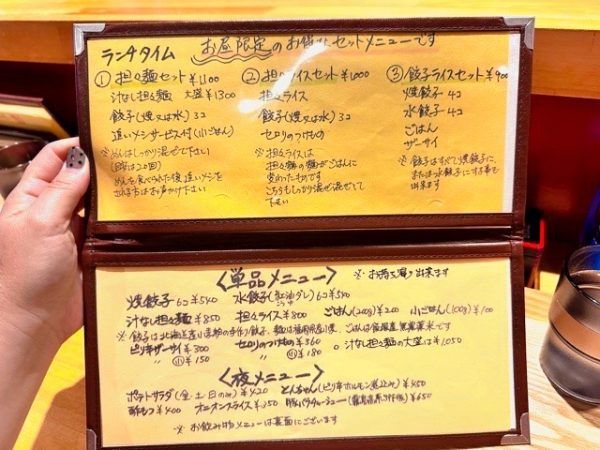 ランチタイム お昼限定のお得なセットメニューです
① 担々麺セット ¥1100
汁なし担々麺 大盛¥1300
餃子(焼又は水) 3コ
追いメシサービス付(小ごはん)
※めんはしっかり混ぜて下さい
(目安は20回)
めんを食べられた後追いメシを
出す方はお声かけ下さい
② 担々ライスセット ¥1000
担々ライス
餃子(焼又は水) 3コ
セロリのつけもの
※ 担々ライスは
担々麺の麺がごはんに
変わったものです
こちらもしっかり混ぜ混ぜして
下さい
③ 餃子ライスセット ¥900
焼餃子 4コ
水餃子 4コ
ごはん
ザーサイ
※ 餃子はすべて焼餃子に、
または水餃子にする事も
出来ます
<単品メニュー> ※ お持ち帰り出来ます
焼餃子 6コ ¥540 水餃子(紅油ダレ) 6コ ¥540
汁なし担々麺 ¥850 担々ライス ¥800 ごはん(200g) ¥200 小ごはん(100g) ¥100
※ 餃子は北海道産小麦粉の手作り餃子、麺は福岡県産小麦、ごはんは飯屋産 です
ピリ辛ザーサイ ¥300 セロリのつけもの ¥360 ○ 汁なし担々麺の大盛は ¥1,050
〃 小 ¥150 〃 小 ¥180
<夜メニュー>
ポテトサラダ(金・土・日のみ) ¥420 とんちゃん(ピリ辛ホルモン煮込み) ¥450
酢もつ ¥400 オニオンスライス ¥250 豚バラチャーシュー ¥650
※ お飲み物メニューは裏面にございます